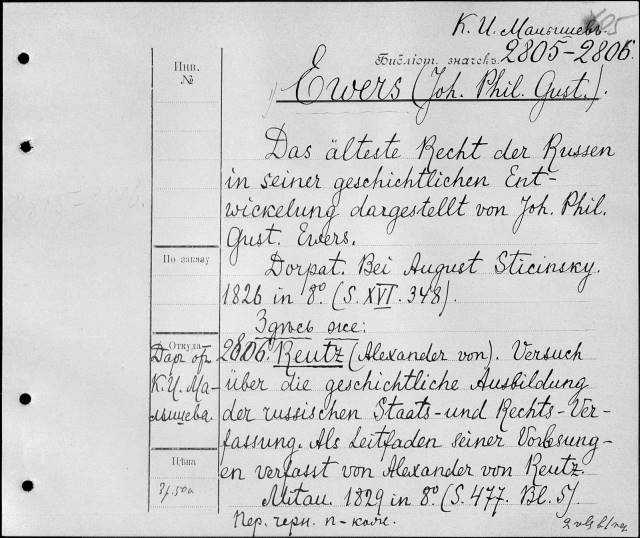 К. И. Малышевъ.
Библіот. значекъ 2805-2806.
Инв.
№
Ewers (Joh. Phil. Gust.).
Das älteste Recht der Russen
in seiner geschichtlichen Ent-
wickelung dargestellt von Joh. Phil.
Gust. Ewers.
По заказу
Dorpat. Bei August Sticinsky.
1826 in 8º. (S. XVI. 348).
Здѣсь же:
Откуда
Даръ отъ
К. И. Ма-
лышева.
2806. Reutz (Alexander von). Versuch
über die geschichtliche Ausbildung
der russischen Staats- und Rechts-Ver-
fassung. Als Leitfaden seiner Vorlesung-
en verfasst von Alexander von Reutz.
Цѣна
3р. 50к
Mitau. 1829 in 8º (S. 477. Bl. 5).
Пер. черн. п-кож.